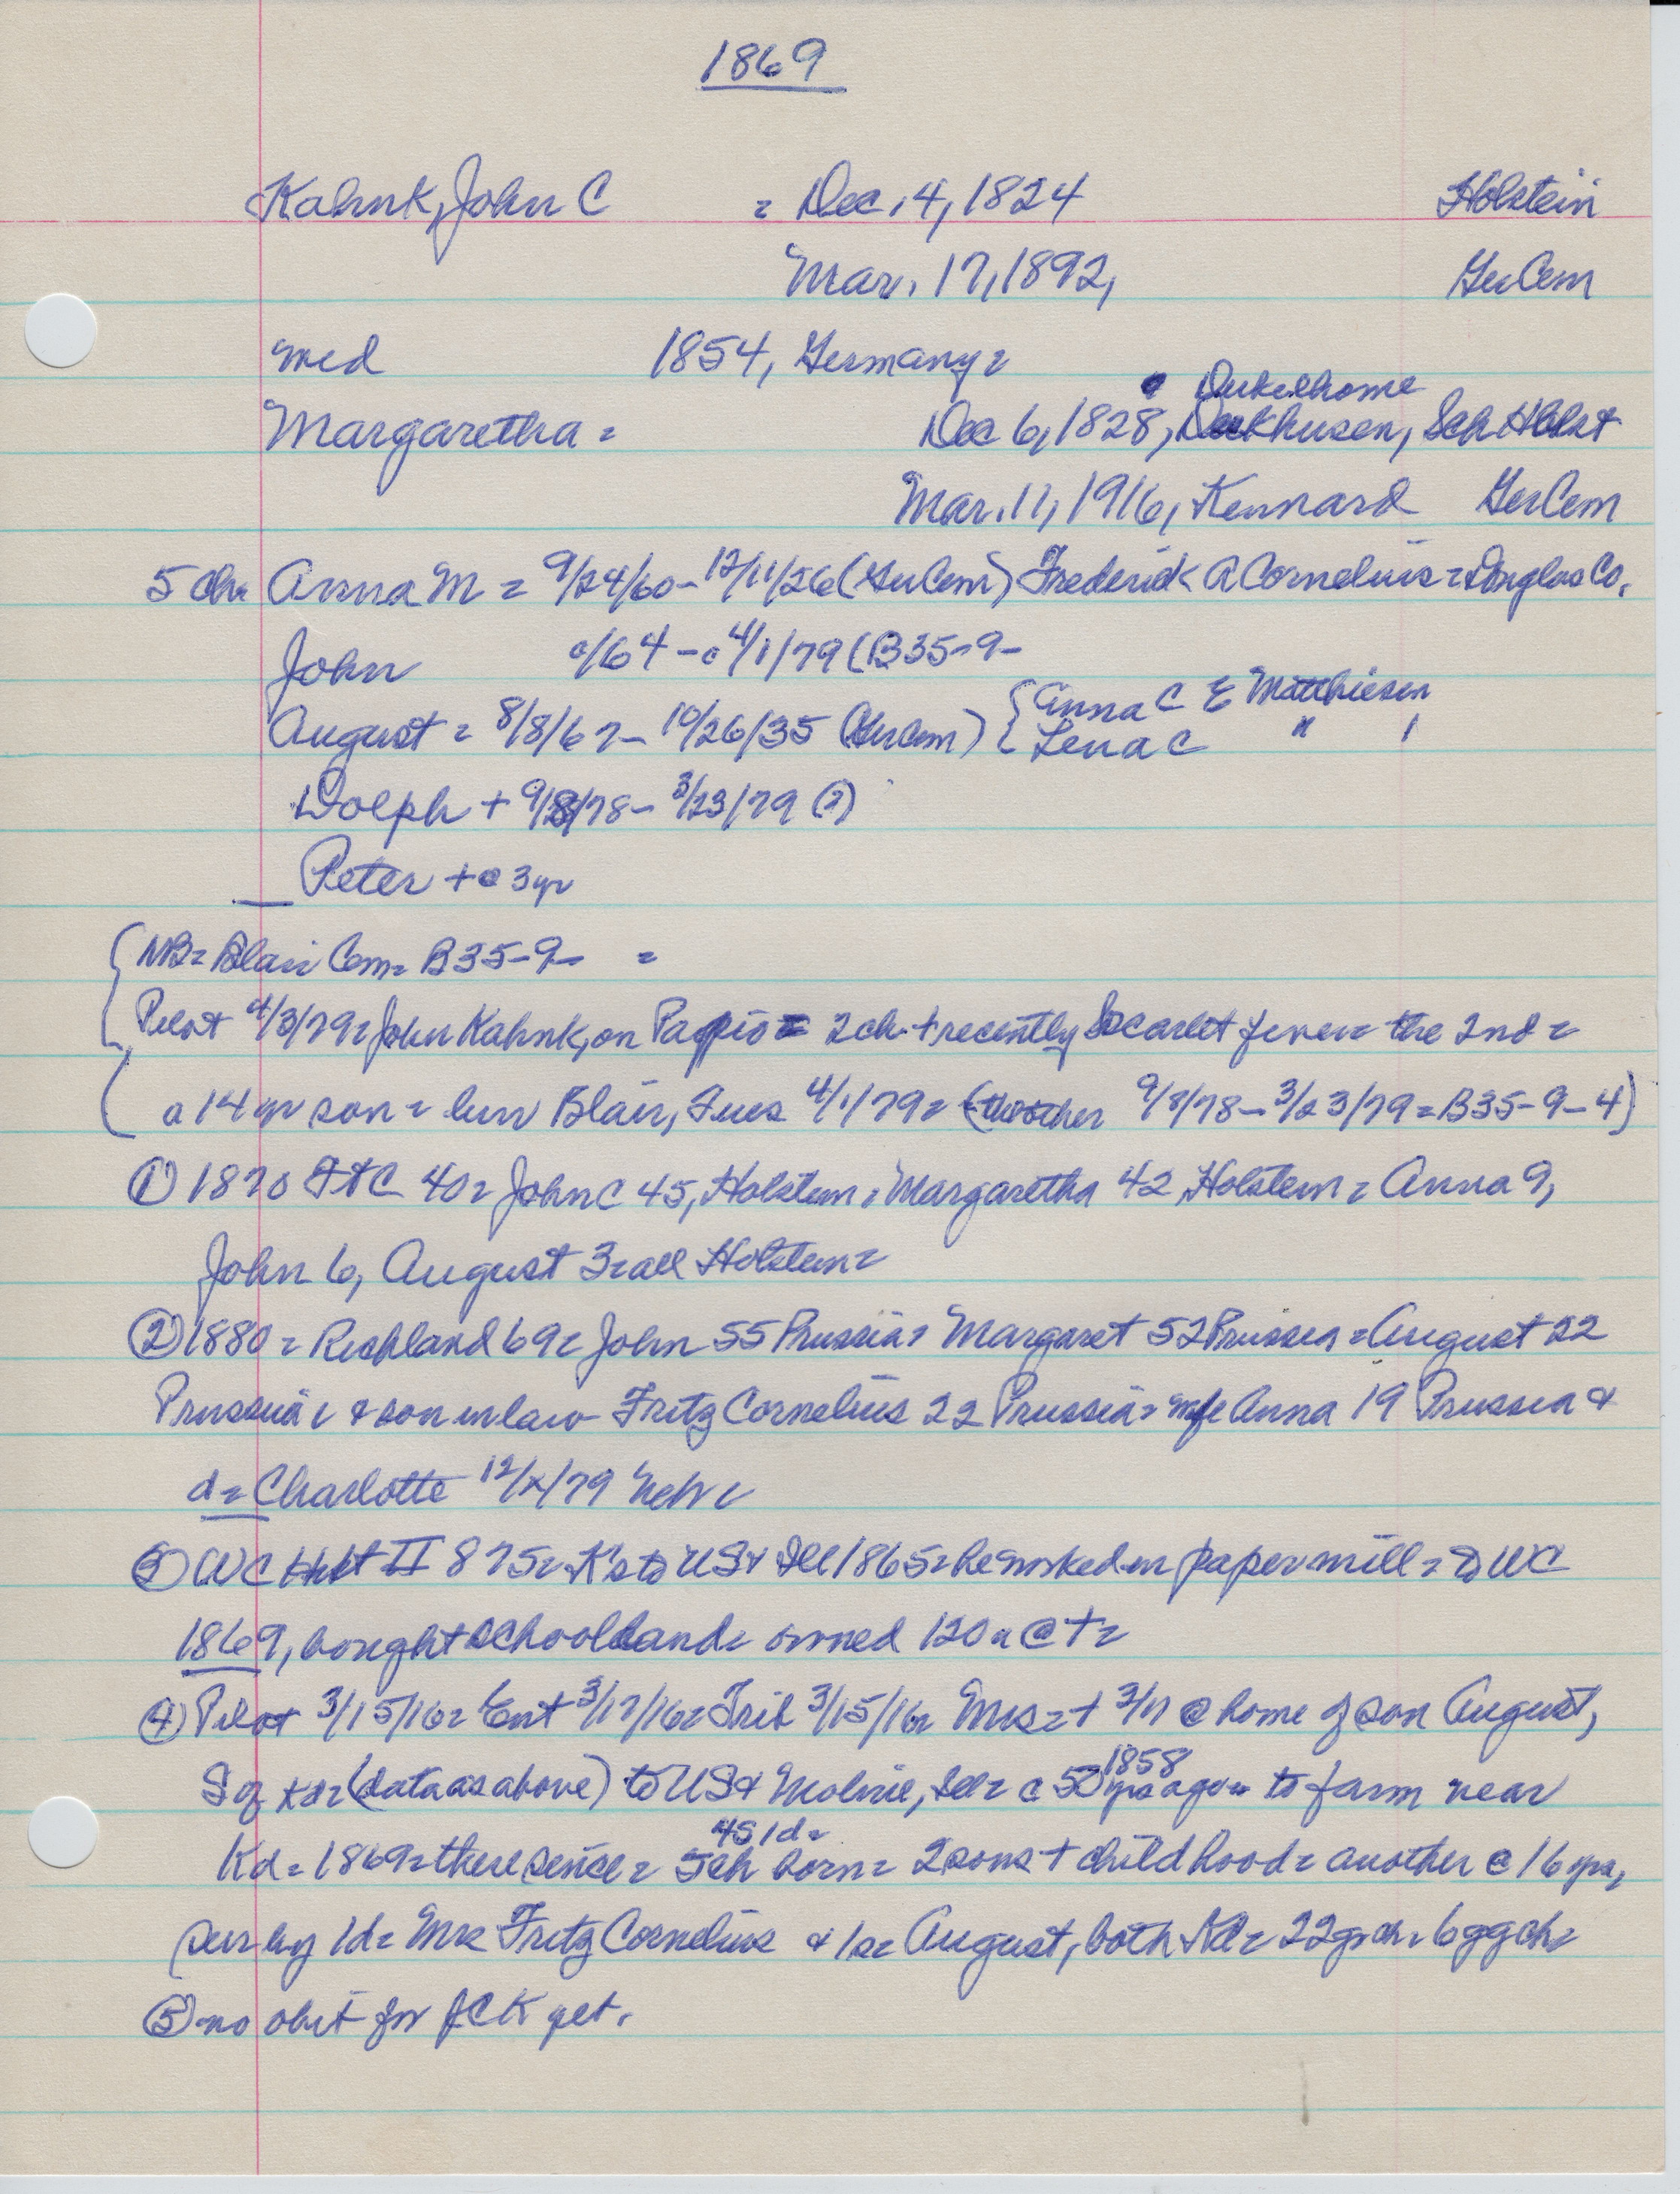 1869
Kahnk, John C = Dec. 4, 1824 Holstein
Mar. 17, 1892, GerCem
med 1854, Germany =
Dukelhome
Margaretha = Dec 6, 1828, Duekhusen, Sch Holst
Mar. 11, 1916, Kennard GerCem
5 ch = Anna M = 9/24/60 - 12/11/26 (GerCem) Frederick A Cornelius = Douglas Co.
John c/64 - c 4/1/79 (B35-9-
August = 8/8/67 - 10/26/35 (GerCem) { Anna C E Matthiesen
{ Lena C " "
Dolph + 9/8/78 - 3/23/79 (?)
Peter + @ 3 yr
NB = Blair Cem = B35-9- =
Pilot 4/3/79 = John Kahnk, on Papio = 2 ch + recently Scarlet fever = the 2nd =
a 14 yr son = bur Blair, Tues 4/1/79 = (another 9/8/78 - 3/23/79 = B35-9-4)
① 1870 FtC 40 = John C 45, Holstein, Margaretha 42, Holstein = Anna 9,
John 6, August 3 = all Holstein =
② 1880 = Richland 69 = John 55 Prussia = Margaret 52 Prussia = August 22
Prussia = & son in law Fritz Cornelius 22 Prussia = wfe Anna 19 Prussia &
d = Charlotte 12/x/79 Nebr =
③ WC Hist II 875 = K's to US & Ill 1865 = he worked in paper mill = to WC
1869, bought school land = owned 120 a @ + =
④ Pilot 3/15/16 = Ent 3/17/16 = Trib 3/15/16 = Mrs = + 3/11 @ home of son August,
S of Kd = (data as above) to US & Moline, Ill = c 50 yrs ago = to farm near
1858
Kd = 1869 = there since = 5 ch born = 2 sons + childhood = another @ 16 yrs,
4s 1d =
sur by 1d = Mrs Fritz Cornelius & 1s = August, both Kd = 22 gr ch, 6 ggch =
⑤ no obit for JCK yet.